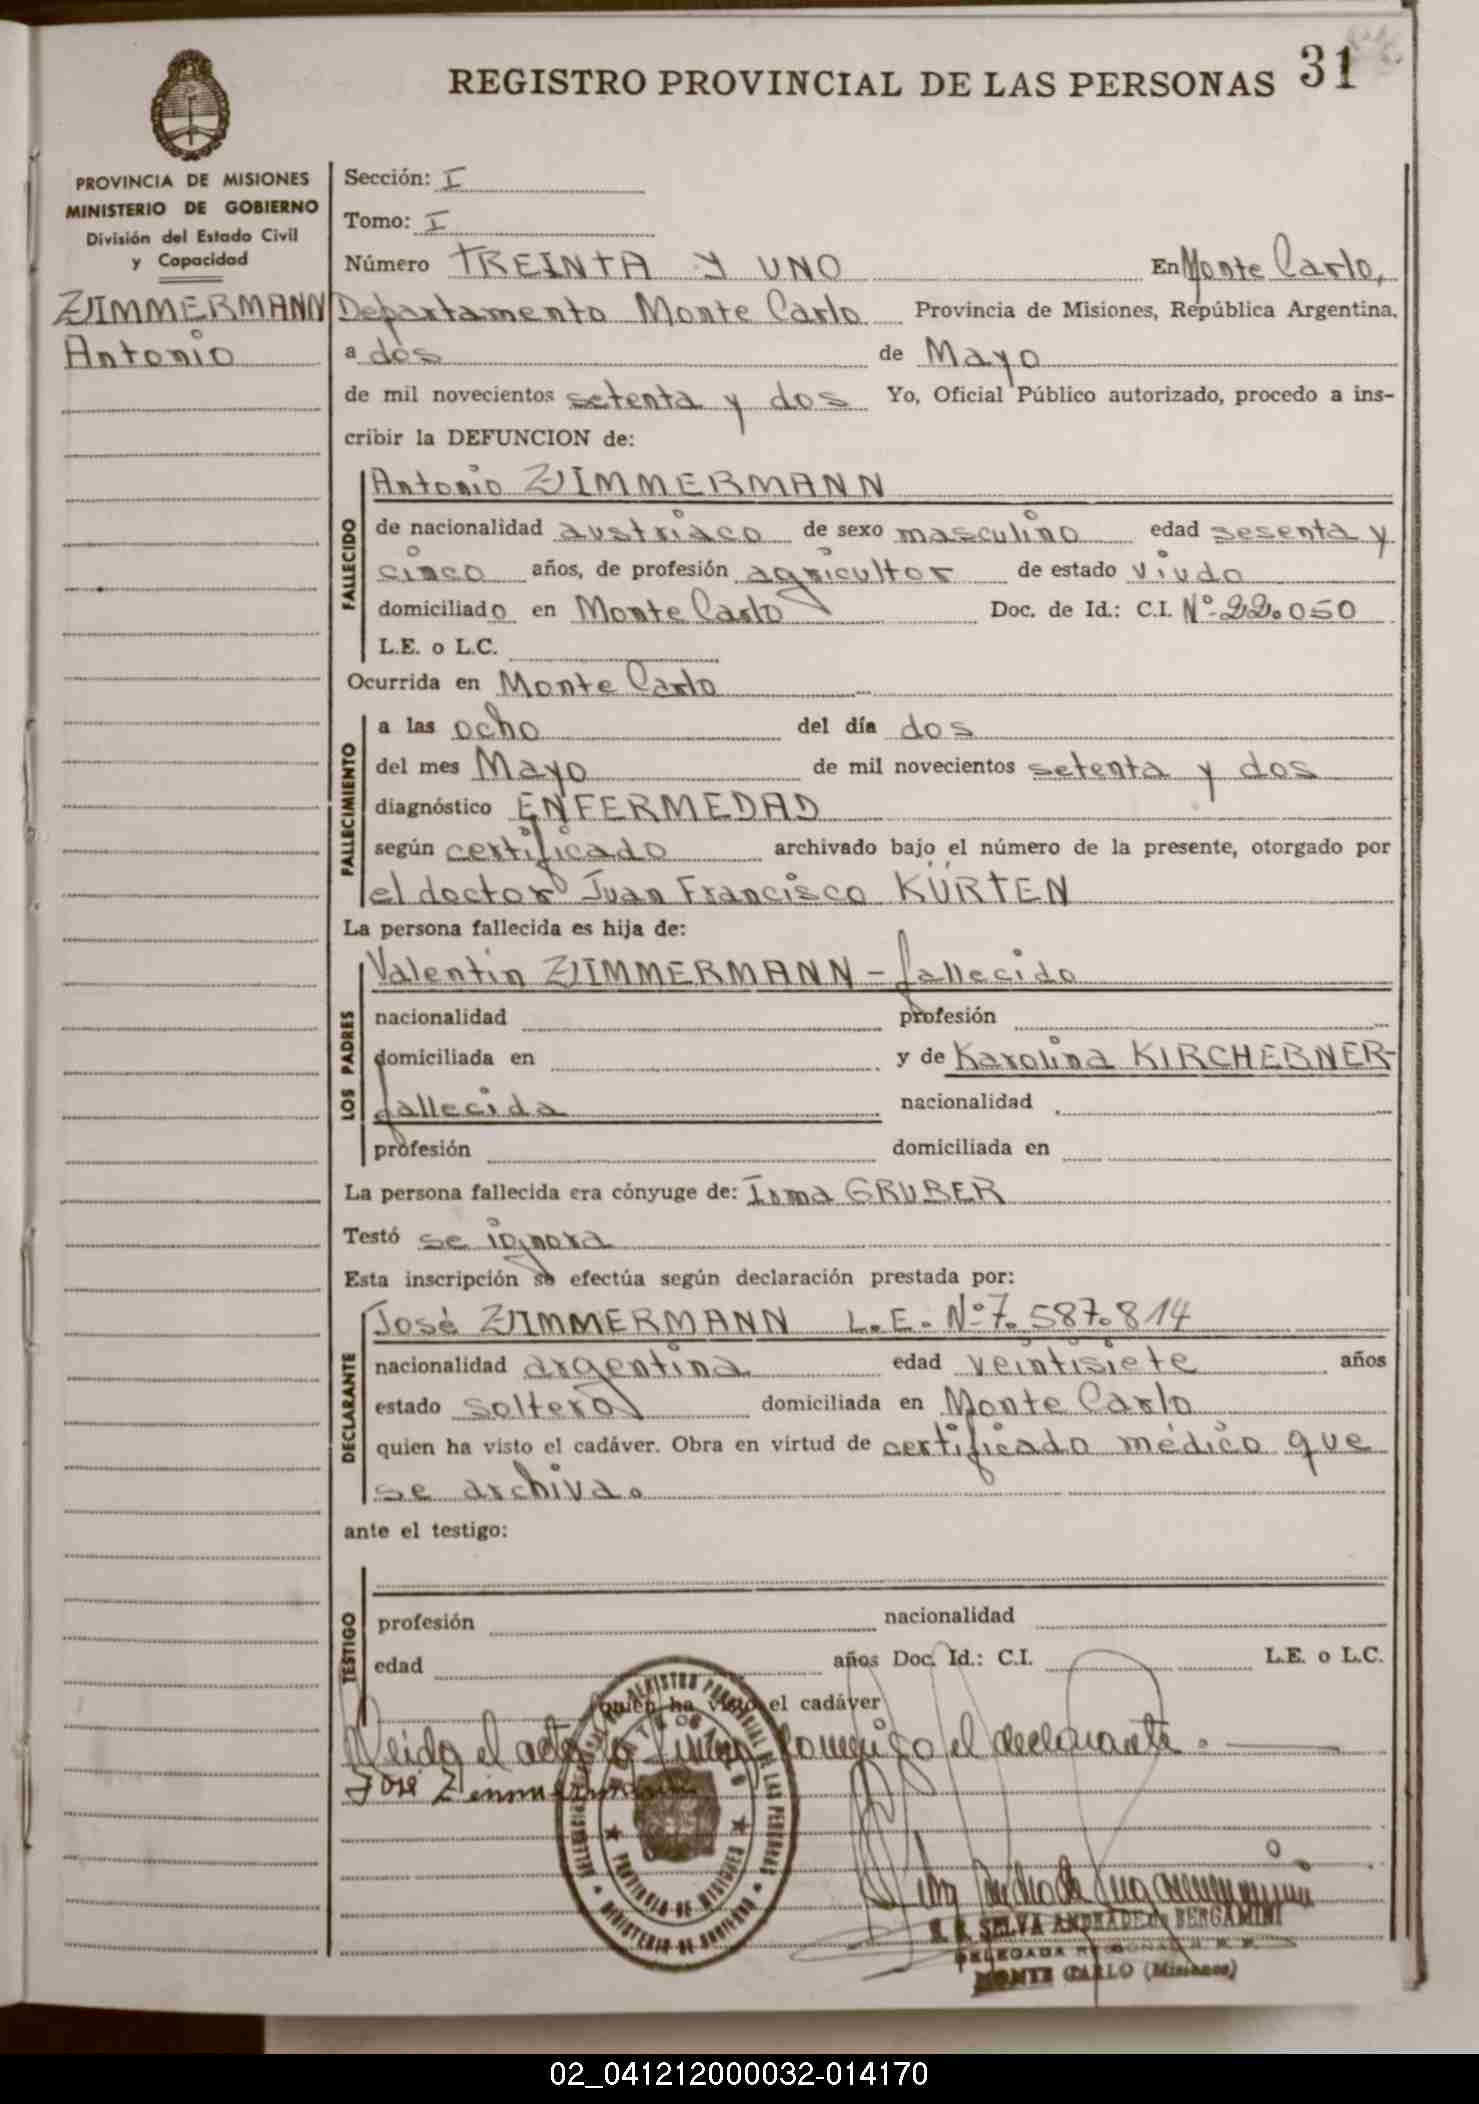 REGISTRO PROVINCIAL DE LAS PERSONAS 31
PROVINCIA DE MISIONES
MINISTERIO DE GOBIERNO
División del Estado Civil
y Capacidad
ZIMMERMANN
Antonio
Sección: I
Tomo: I
Número TREINTA Y UNO En Monte Carlo,
Departamento Monte Carlo Provincia de Misiones, República Argentina,
a dos de Mayo
de mil novecientos setenta y dos Yo, Oficial Público autorizado, procedo a ins-
cribir la DEFUNCION de:
FALLECIDO
Antonio ZIMMERMANN
de nacionalidad austriaco de sexo masculino edad sesenta y
cinco años, de profesión agricultor de estado viudo
domiciliado en Monte Carlo Doc. de Id.: C.I. Nº 22.050
L.E. o L.C.
Ocurrida en Monte Carlo
FALLECIMIENTO
a las ocho del día dos
del mes Mayo de mil novecientos setenta y dos
diagnóstico ENFERMEDAD
según certificado archivado bajo el número de la presente, otorgado por
el doctor Juan Francisco KÜRTEN
La persona fallecida es hija de:
LOS PADRES
Valentín ZIMMERMANN - fallecido
nacionalidad profesión
domiciliada en y de Karolina KIRCHEBNER-
fallecida nacionalidad
profesión domiciliada en
La persona fallecida era cónyuge de: Irma GRUBER
Testó se ignora
Esta inscripción se efectúa según declaración prestada por:
DECLARANTE
José ZIMMERMANN L.E. Nº 7.587.814
nacionalidad argentina edad veintisiete años
estado soltero domiciliada en Monte Carlo
quien ha visto el cadáver. Obra en virtud de certificado médico que
se archiva.
ante el testigo:
TESTIGO
profesión nacionalidad
edad años Doc. Id.: C.I. L.E. o L.C.
quien ha visto el cadáver
Leida el acta la firma conmigo el declarante.
José Zimmermann
REGISTRO PROVINCIAL DE LAS PERSONAS
MONTE CARLO
PROVINCIA DE MISIONES
MINISTERIO DE GOBIERNO
SELVA ANDRADE de BERGAMINI
DELEGADA
MONTE CARLO (Misiones)
02_041212000032-014170